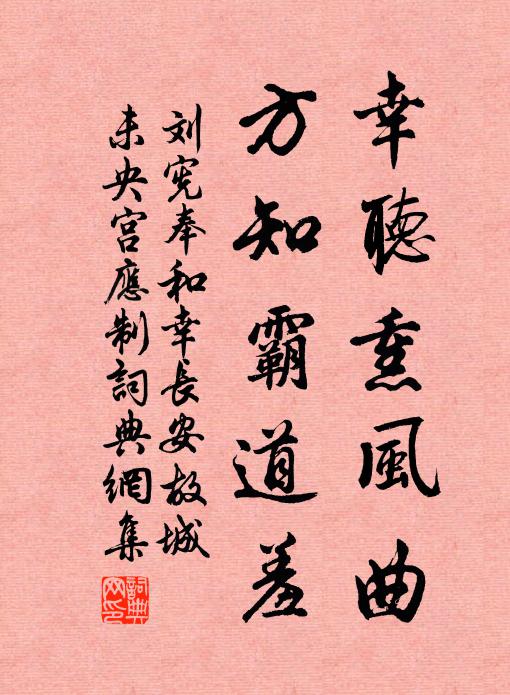 幸聽熏風曲
方知霸道羞
刘宪奉和幸長安故城
未央宫應制詞典網集
詞典網印